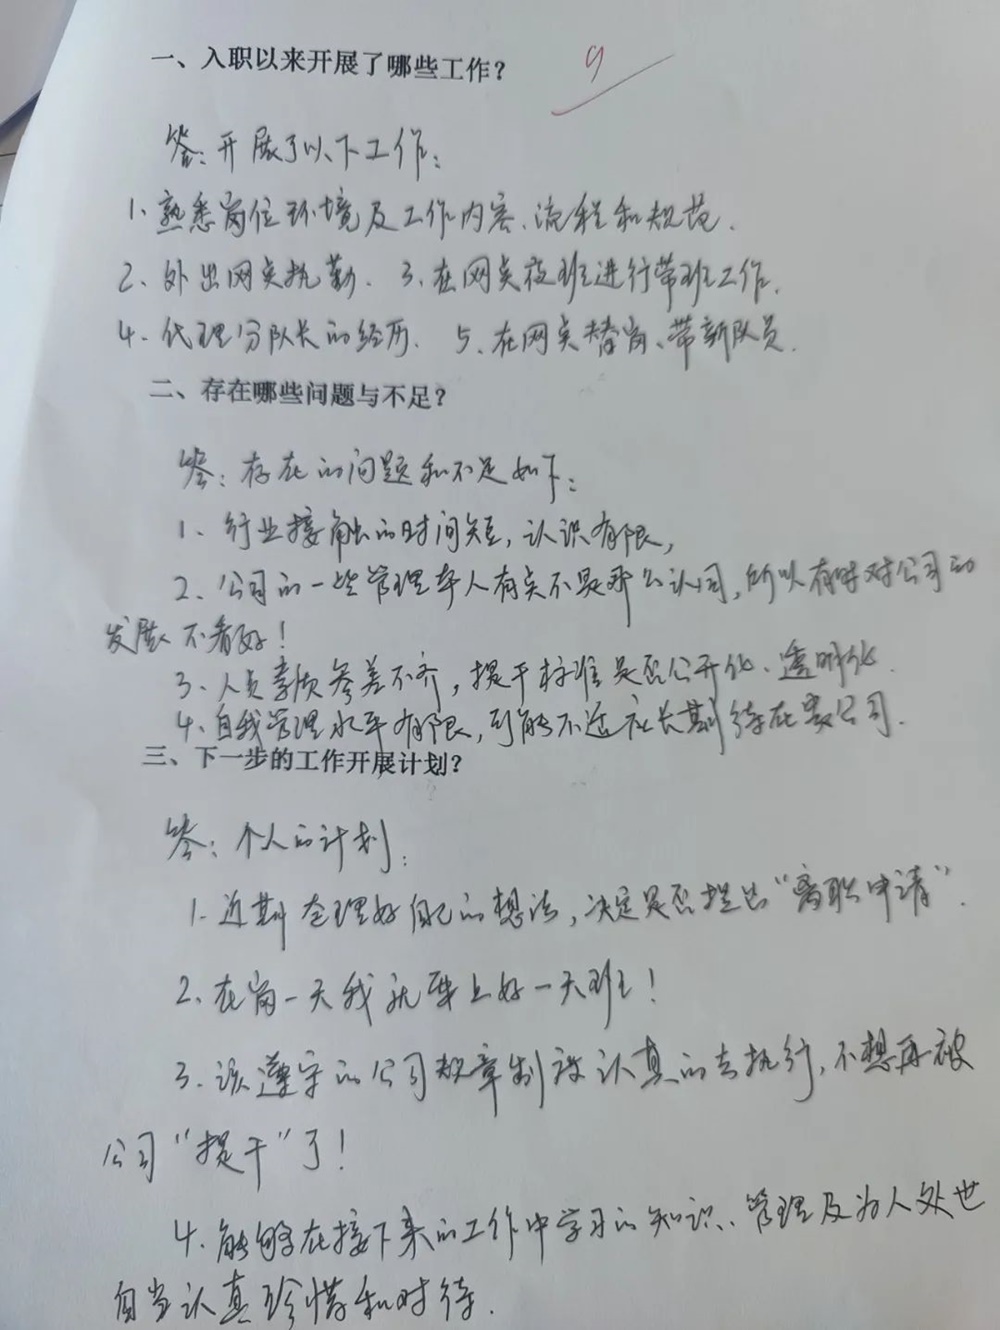 一、入职以来开展了哪些工作？
9
答：开展了以下工作：
1、熟悉岗位环境及工作内容、流程和规范.
2、外出网点执勤. 3、在网点夜班进行带班工作.
4、代理分队长的经历. 5、在网点替岗、带新队员.
二、存在哪些问题与不足？
答：存在的问题和不足如下：
1、行业接触的时间短，认识有限，
2、公司的一些管理本人有点不是那么认同，所以有时对公司的
发展不看好！
3、人员素质参差不齐，提干标准是否公开化、透明化.
4、自我管理水平有限，可能不适应长期待在贵公司.
三、下一步的工作开展计划？
答：个人的计划：
1、近期整理好自己的想法，决定是否提出“离职申请”.
2、在岗一天我就要上好一天班！
3、该遵守的公司规章制度认真的去执行，不想再被
公司“提干”了！
4、能够在接下来的工作中学习的知识、管理及为人处世
自当认真珍惜和对待.